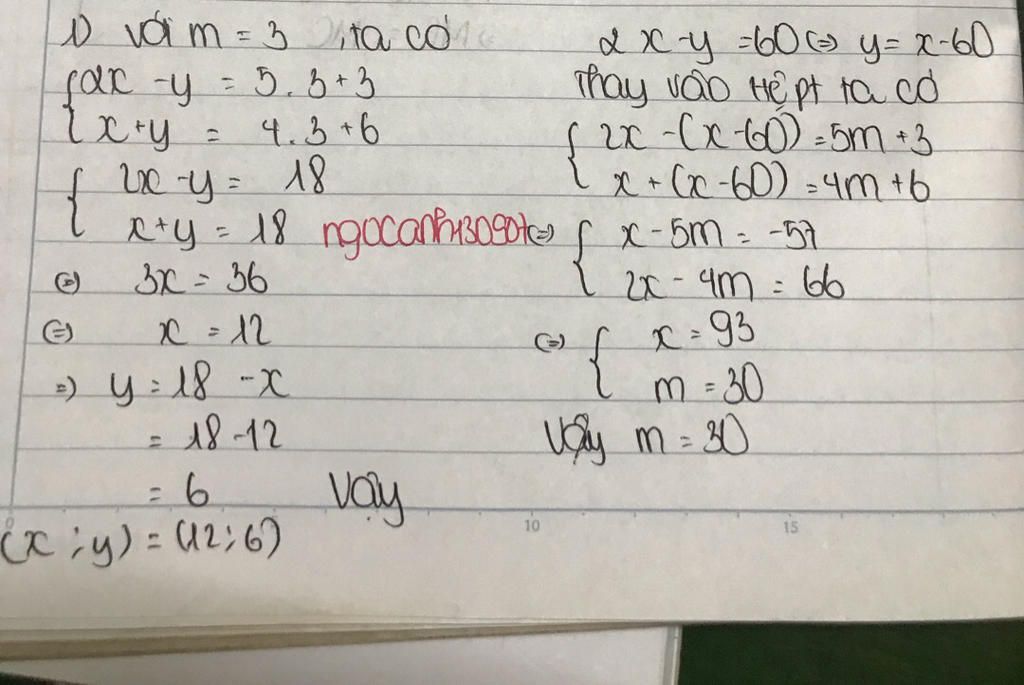 1) với m = 3 , ta có
{2x - y = 5. 3 + 3
x + y = 4.3 + 6
{2x - y = 18
x + y = 18
(=) 3x = 36
(=) x = 12
=) y = 18 - x
= 18 - 12
= 6 Vậy
(x ; y) = (12 ; 6)
ngocanh130907
2 x - y = 60 (=) y = x - 60
Thay vào Hệ pt ta có
{2x - (x - 60) = 5m + 3
x + (x - 60) = 4m + 6
(=) {x - 5m = -57
2x - 4m = 66
(=) {x = 93
m = 30
Vậy m = 30
10 15